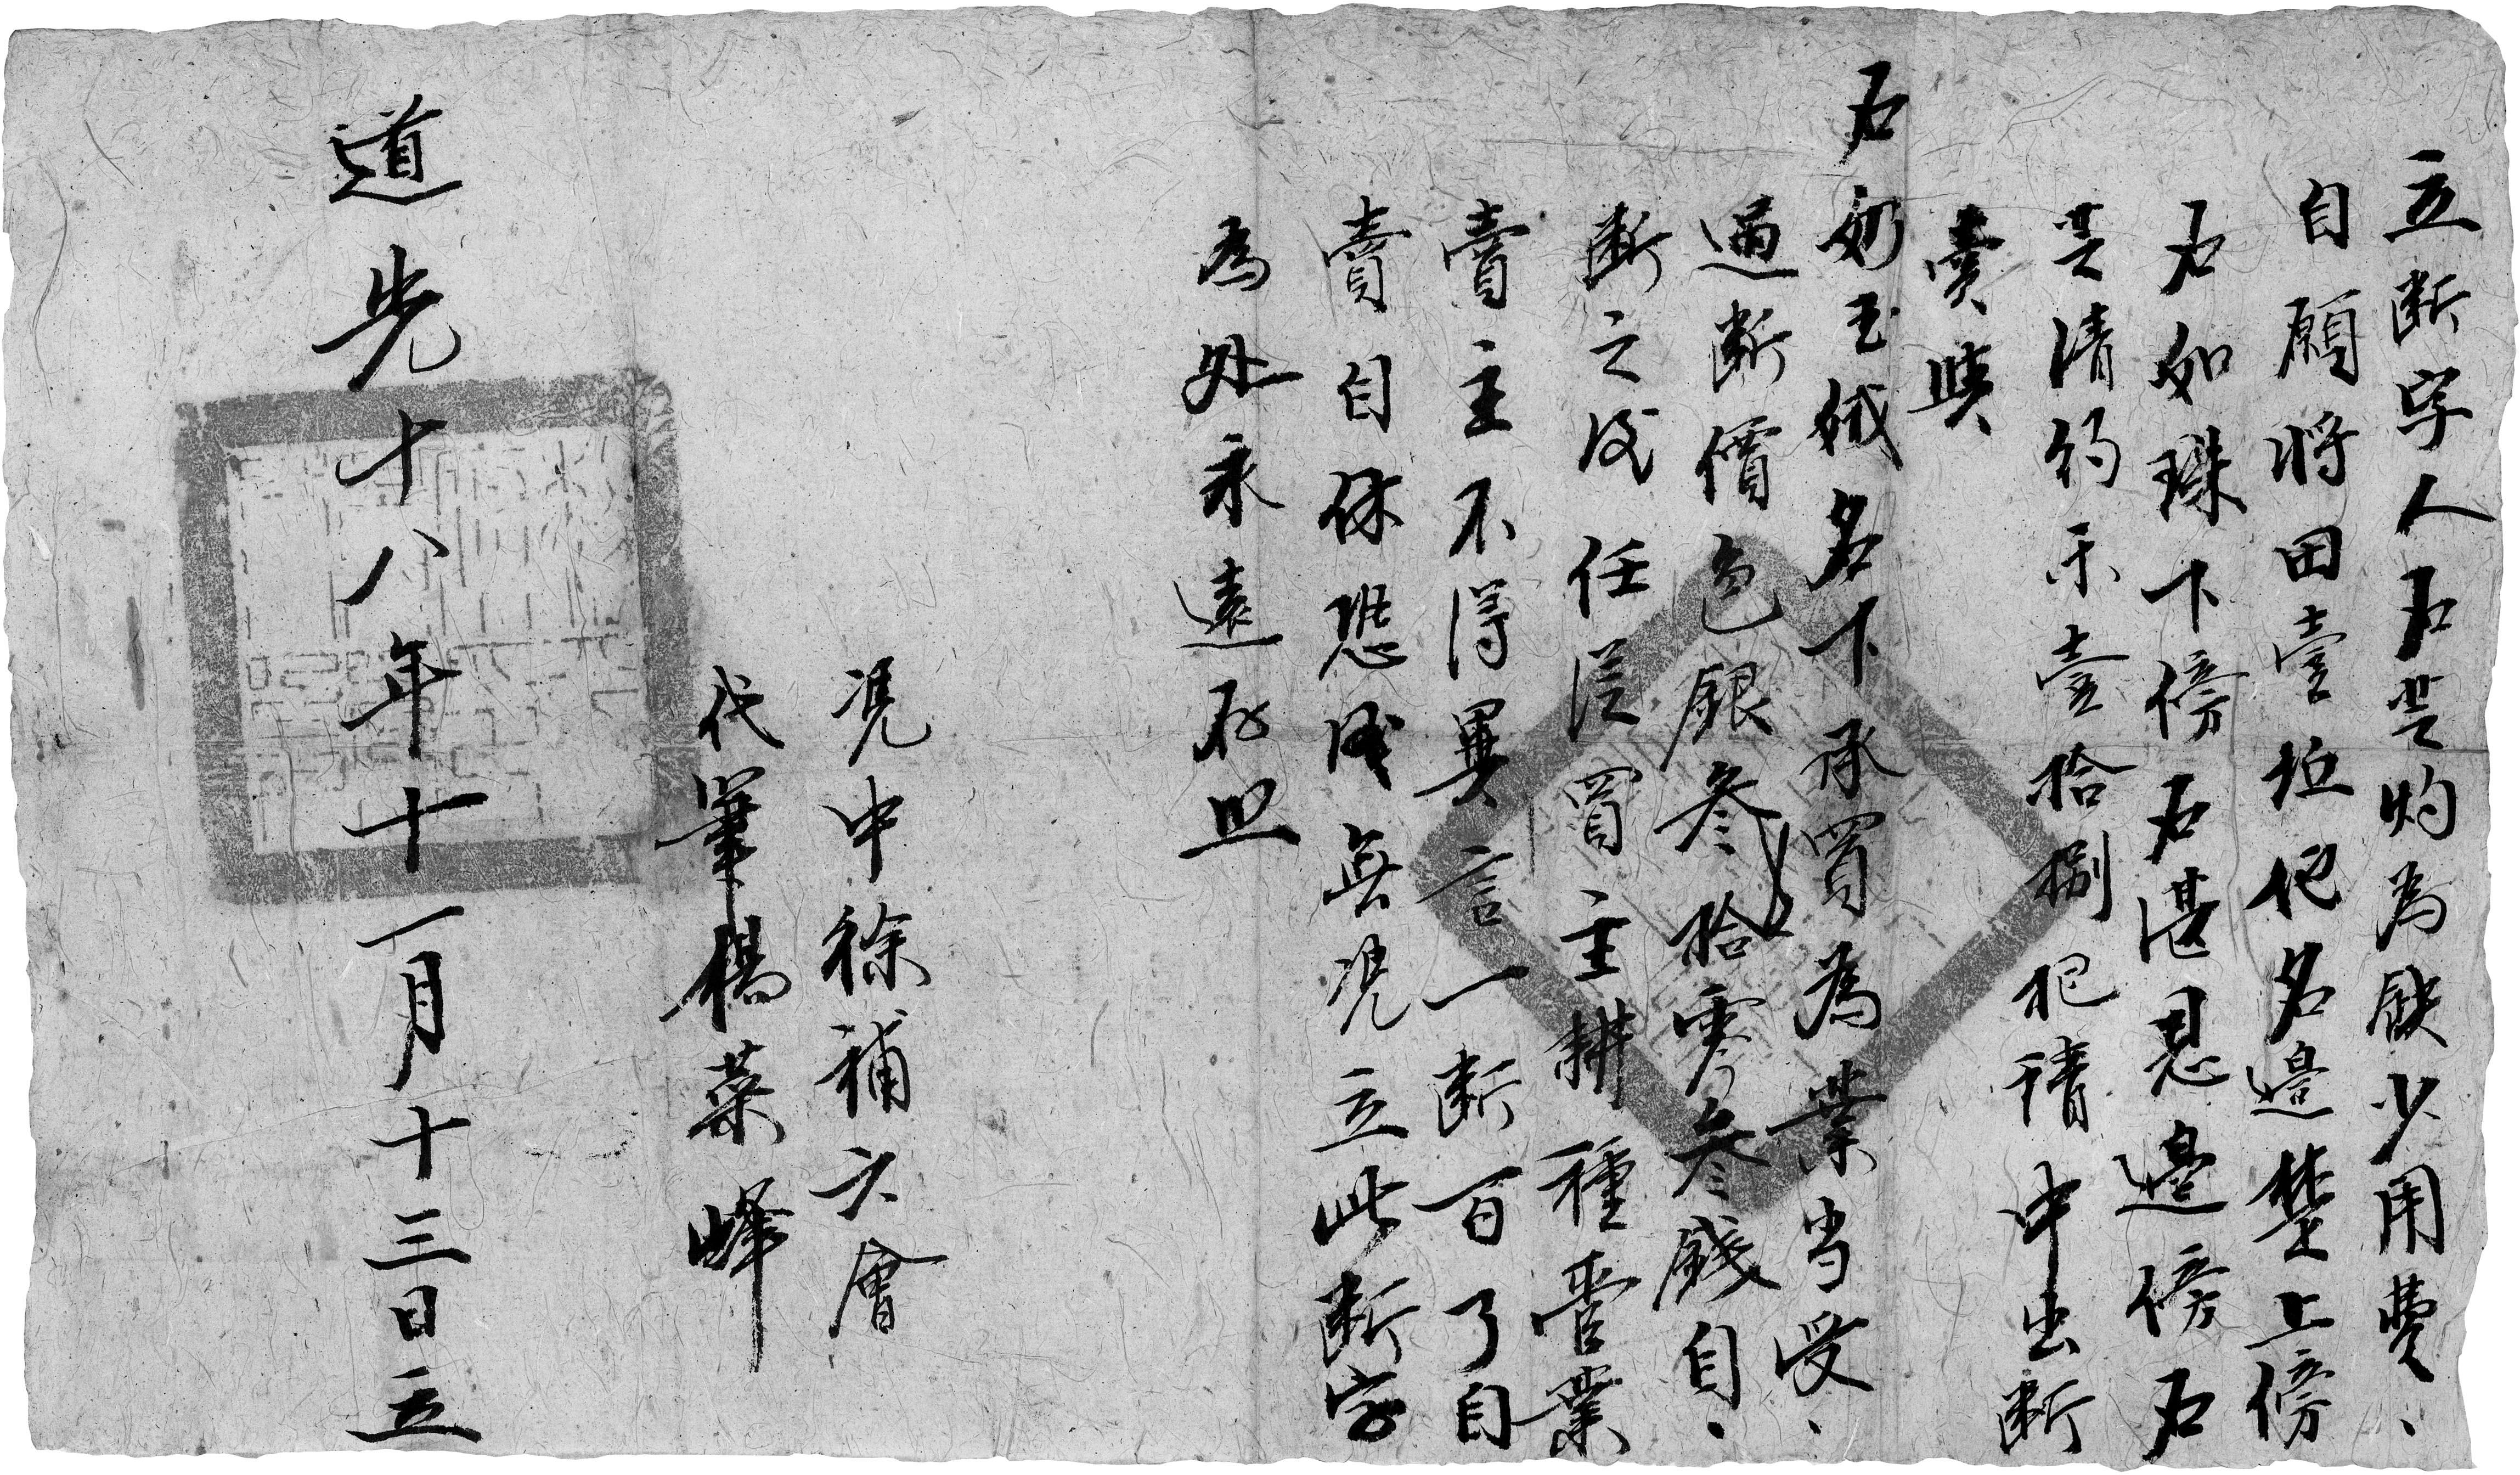 立断字人石芒灼為缺少用費、
自願将田壹坵地名邊埜上傍
石如珠下傍石湛恩邊傍石
芒清約禾壹拾捌把請中出断
賣與
石奶玉絨名下承買為業当受、
過断價色銀叁拾零叁錢自、
断之後任從買主耕種管業
賣主不得異言一断百了自
賣自休恐後無凴立此断字
為处永遠存照
凴中徐補六會
代筆楊菜峰
道光十八年十一月十三日立